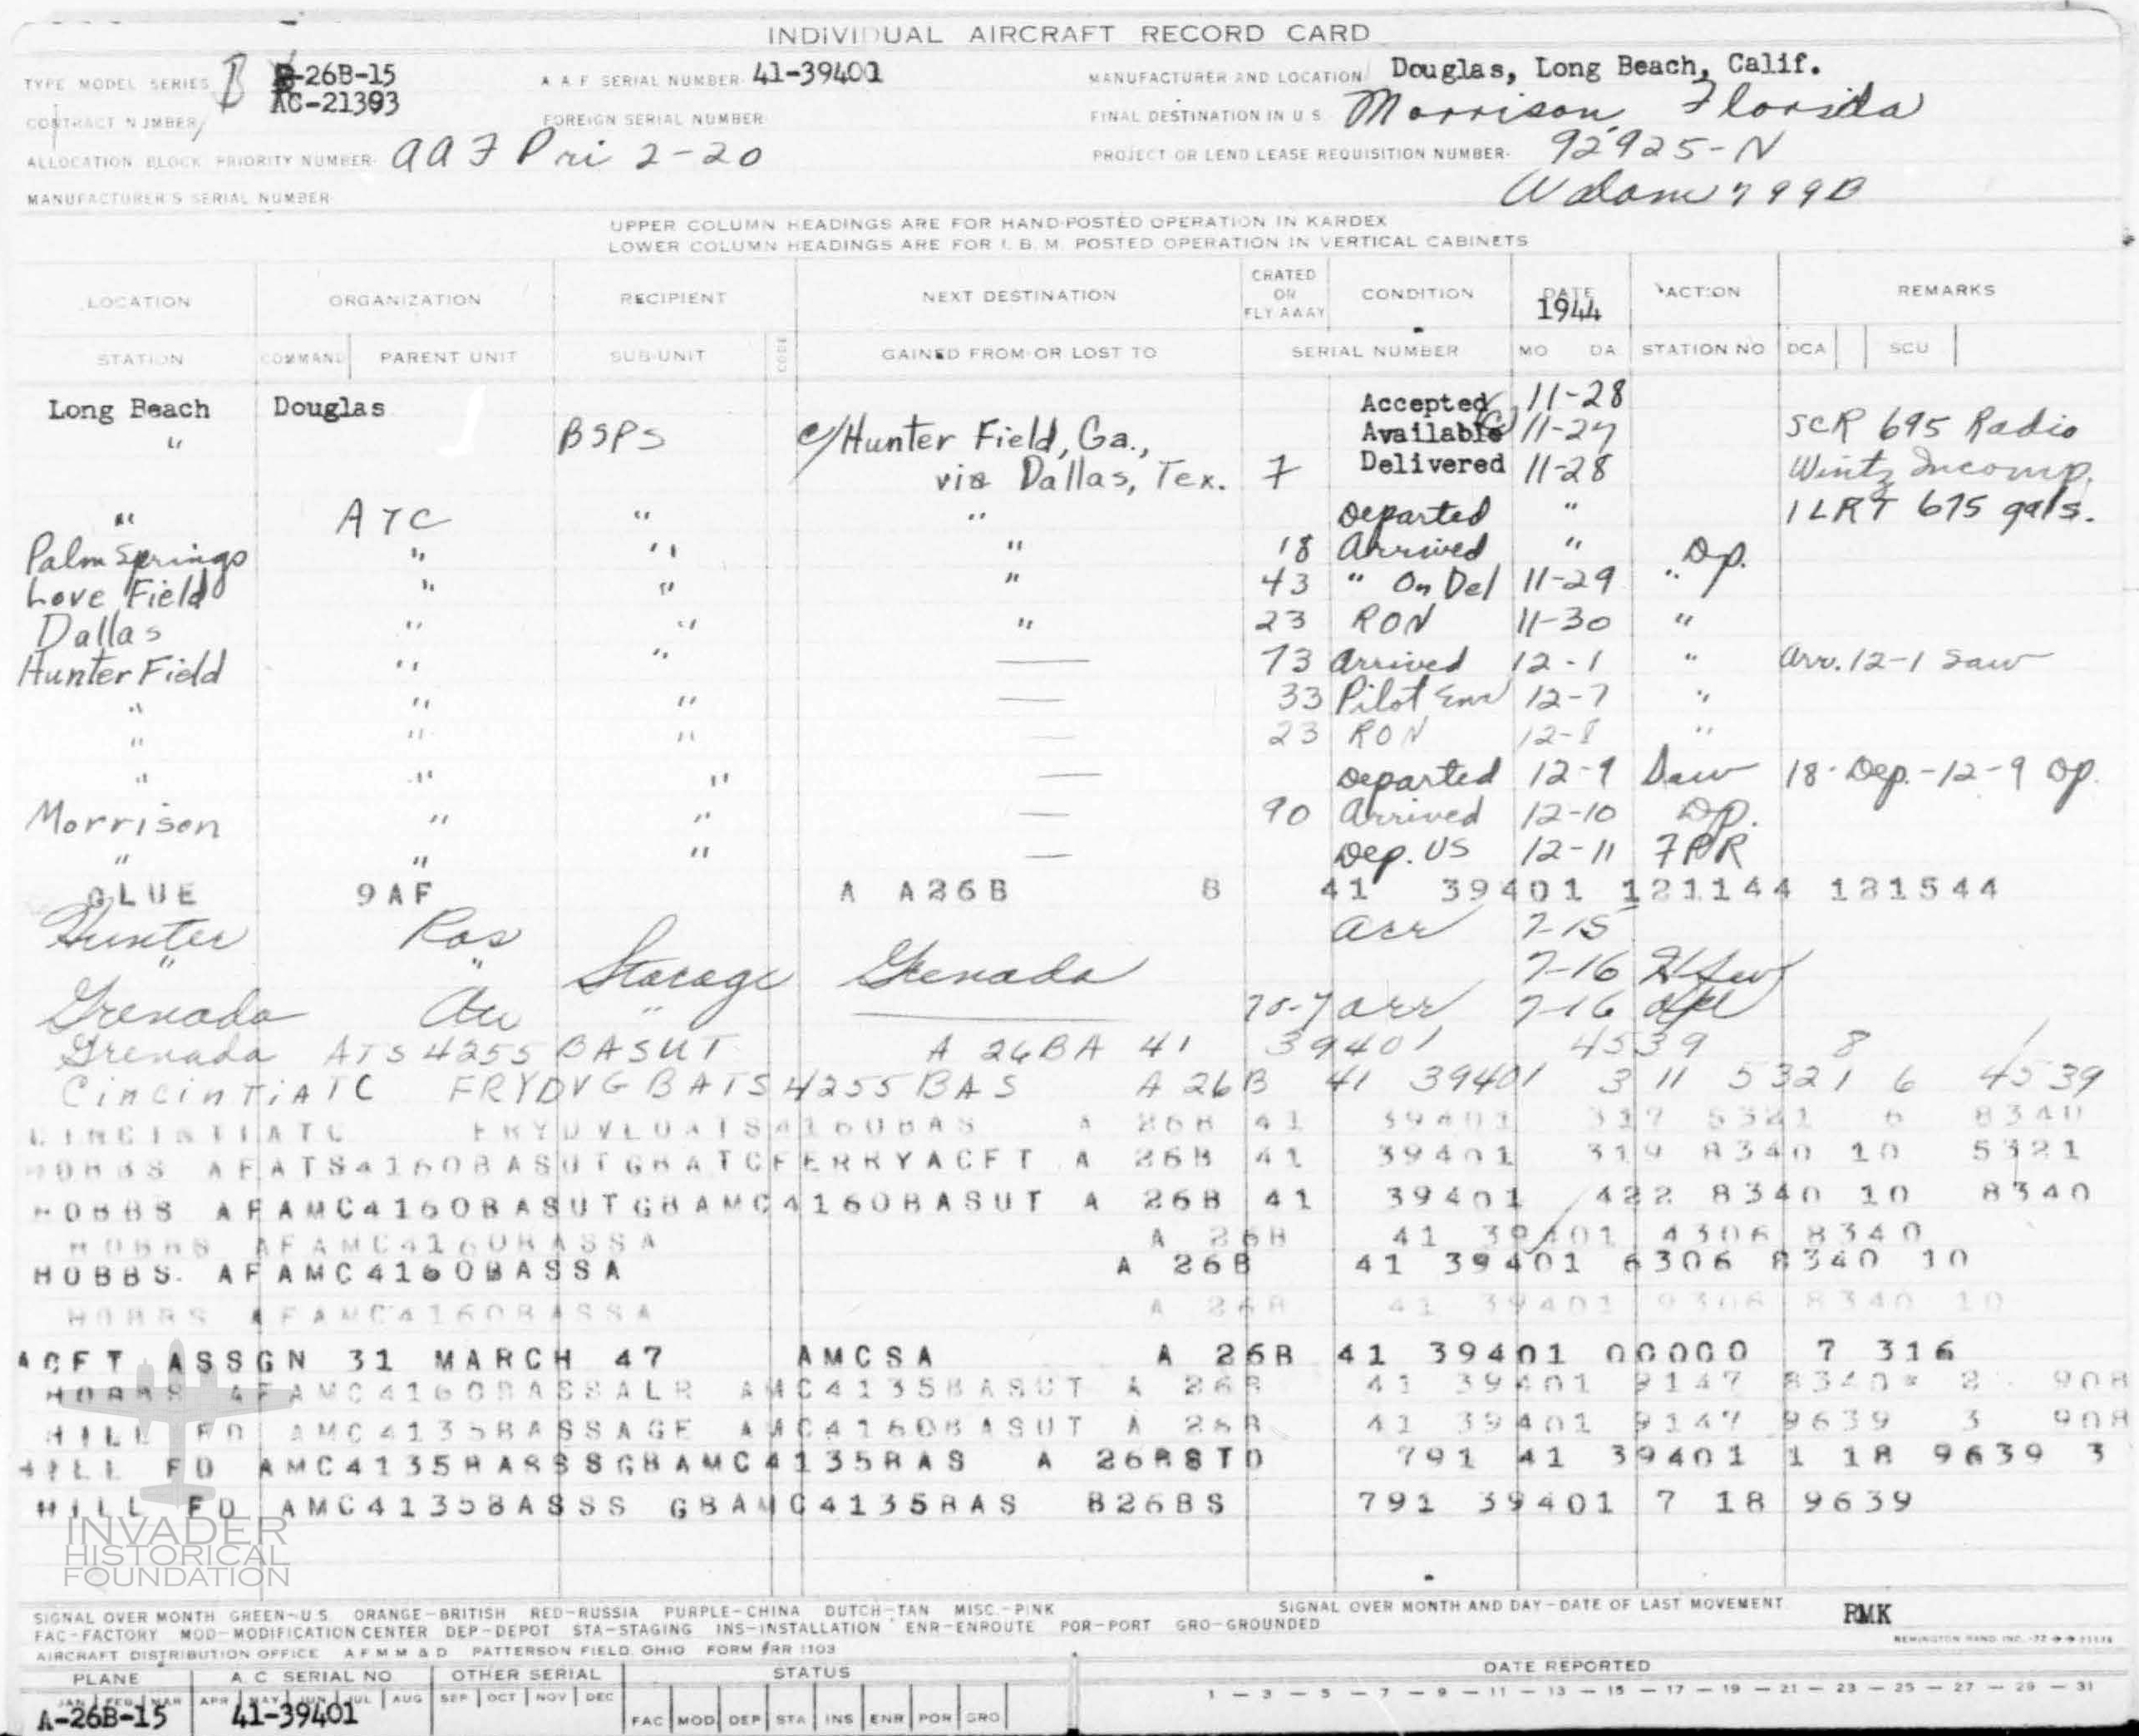 INDIVIDUAL AIRCRAFT RECORD CARD
TYPE MODEL SERIES B -26B-15 A A F SERIAL NUMBER 41-39401 MANUFACTURER AND LOCATION Douglas, Long Beach, Calif.
CONTRACT NUMBER AC-21393 FOREIGN SERIAL NUMBER FINAL DESTINATION IN U S Morrison Florida
ALLOCATION BLOCK PRIORITY NUMBER AAF Pri 2-20 PROJECT OR LEND LEASE REQUISITION NUMBER 92925-N
MANUFACTURER'S SERIAL NUMBER
UPPER COLUMN HEADINGS ARE FOR HAND-POSTED OPERATION IN KARDEX
LOWER COLUMN HEADINGS ARE FOR I. B. M. POSTED OPERATION IN VERTICAL CABINETS
LOCATION ORGANIZATION RECIPIENT NEXT DESTINATION CRATED OR FLY AWAY CONDITION DATE 1944 ACTION REMARKS
STATION COMMAND PARENT UNIT SUB-UNIT CODE GAINED FROM-OR LOST TO SERIAL NUMBER MO DA STATION NO DCA SCU
Long Beach Douglas Accepted 11-28
" BSPS c/Hunter Field, Ga., Available 11-27 SCR 695 Radio
via Dallas, Tex. 7 Delivered 11-28 Wintz Incomp.
" ATC " " Departed " 1 LRT 675 gals.
Palm Springs " " " 18 Arrived " Dp.
Love Field " " " 43 " On Del 11-29 "
Dallas " " " 23 RON 11-30 "
Hunter Field " " — 73 Arrived 12-1 " Arr. 12-1 Saw
" " " — 33 Pilot Enr 12-7 "
" " " — 23 RON 12-8 "
" " " — Departed 12-9 Saw 18-Dep.-12-9 Dp.
Morrison " " — 90 Arrived 12-10 Dp.
" " " — Dep. US 12-11
GLUE 9AF A A26B B 41 39401 121144 121544
Hunter arr 7-15
" " Storage Grenada 7-16
Grenada " arr 7-16
Grenada ATS 4255 BASUT A 26BA 41 39401 4539 8
CincinTi ATC FRYDVG BATS 4255 BAS A 26B 41 39401 3 11 5321 6 4539
CINCINTIATC FRYDVLOATS4160BAS A 26B 41 39401 317 5321 6 8340
HOBBS AFATS4160BASUTGBATCFERRYACFT A 26B 41 39401 319 8340 10 5321
HOBBS AFAMC4160BASUTGBAMC4160BASUT A 26B 41 39401 422 8340 10 8340
HOBBS AFAMC4160BASSA A 26B 41 39401 4306 8340
HOBBS AFAMC4160BASSA A 26B 41 39401 6306 8340 10
HOBBS AFAMC4160BASSA A 26B 41 39401 9306 8340 10
ACFT ASSGN 31 MARCH 47 AMCSA A 26B 41 39401 00000 7 316
HOBBS AFAMC4160BASSALR AMC4135BASUT A 26B 41 39401 9147 8340* 2 908
HILL FD AMC4135BASSAGE AMC4160BASUT A 26B 41 39401 9147 9639 3 908
HILL FD AMC4135BASSSGBAMC4135BAS A 26BSTD 791 41 39401 1 18 9639 3
HILL FD AMC4135BASSS GBAMC4135BAS B26BS 791 39401 7 18 9639
INVADER
HISTORICAL
FOUNDATION
SIGNAL OVER MONTH GREEN-U.S. ORANGE-BRITISH RED-RUSSIA PURPLE-CHINA DUTCH-TAN MISC.-PINK SIGNAL OVER MONTH AND DAY-DATE OF LAST MOVEMENT. RMK
FAC-FACTORY MOD-MODIFICATION CENTER DEP-DEPOT STA-STAGING INS-INSTALLATION ENR-ENROUTE POR-PORT GRO-GROUNDED
AIRCRAFT DISTRIBUTION OFFICE A F M M & D PATTERSON FIELD, OHIO FORM #RR 1103
PLANE A C SERIAL NO OTHER SERIAL STATUS DATE REPORTED
JAN FEB MAR APR MAY JUN JUL AUG SEP OCT NOV DEC 1 — 3 — 5 — 7 — 9 — 11 — 13 — 15 — 17 — 19 — 21 — 23 — 25 — 27 — 29 — 31
A-26B-15 41-39401 FAC MOD DEP STA INS ENR POR GRO